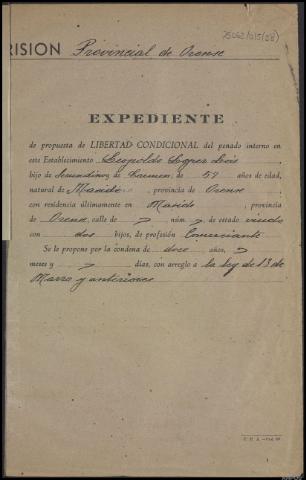 75062/015(58)
RISION Provincial de Orense
EXPEDIENTE
de propuesta de LIBERTAD CONDICIONAL del penado interno en
este Establecimiento Leopoldo Lopez
hijo de Secundino y de Carmen, de 59 años de edad,
natural de Maside, provincia de Orense
con residencia últimamente en Maside, provincia
de Orense, calle de ? núm. ? de estado viudo
con dos hijos, de profesión Comerciante
Se le propone por la condena de doce años, ?
meses y ? días, con arreglo a la ley de 13 de
Marzo y anteriores